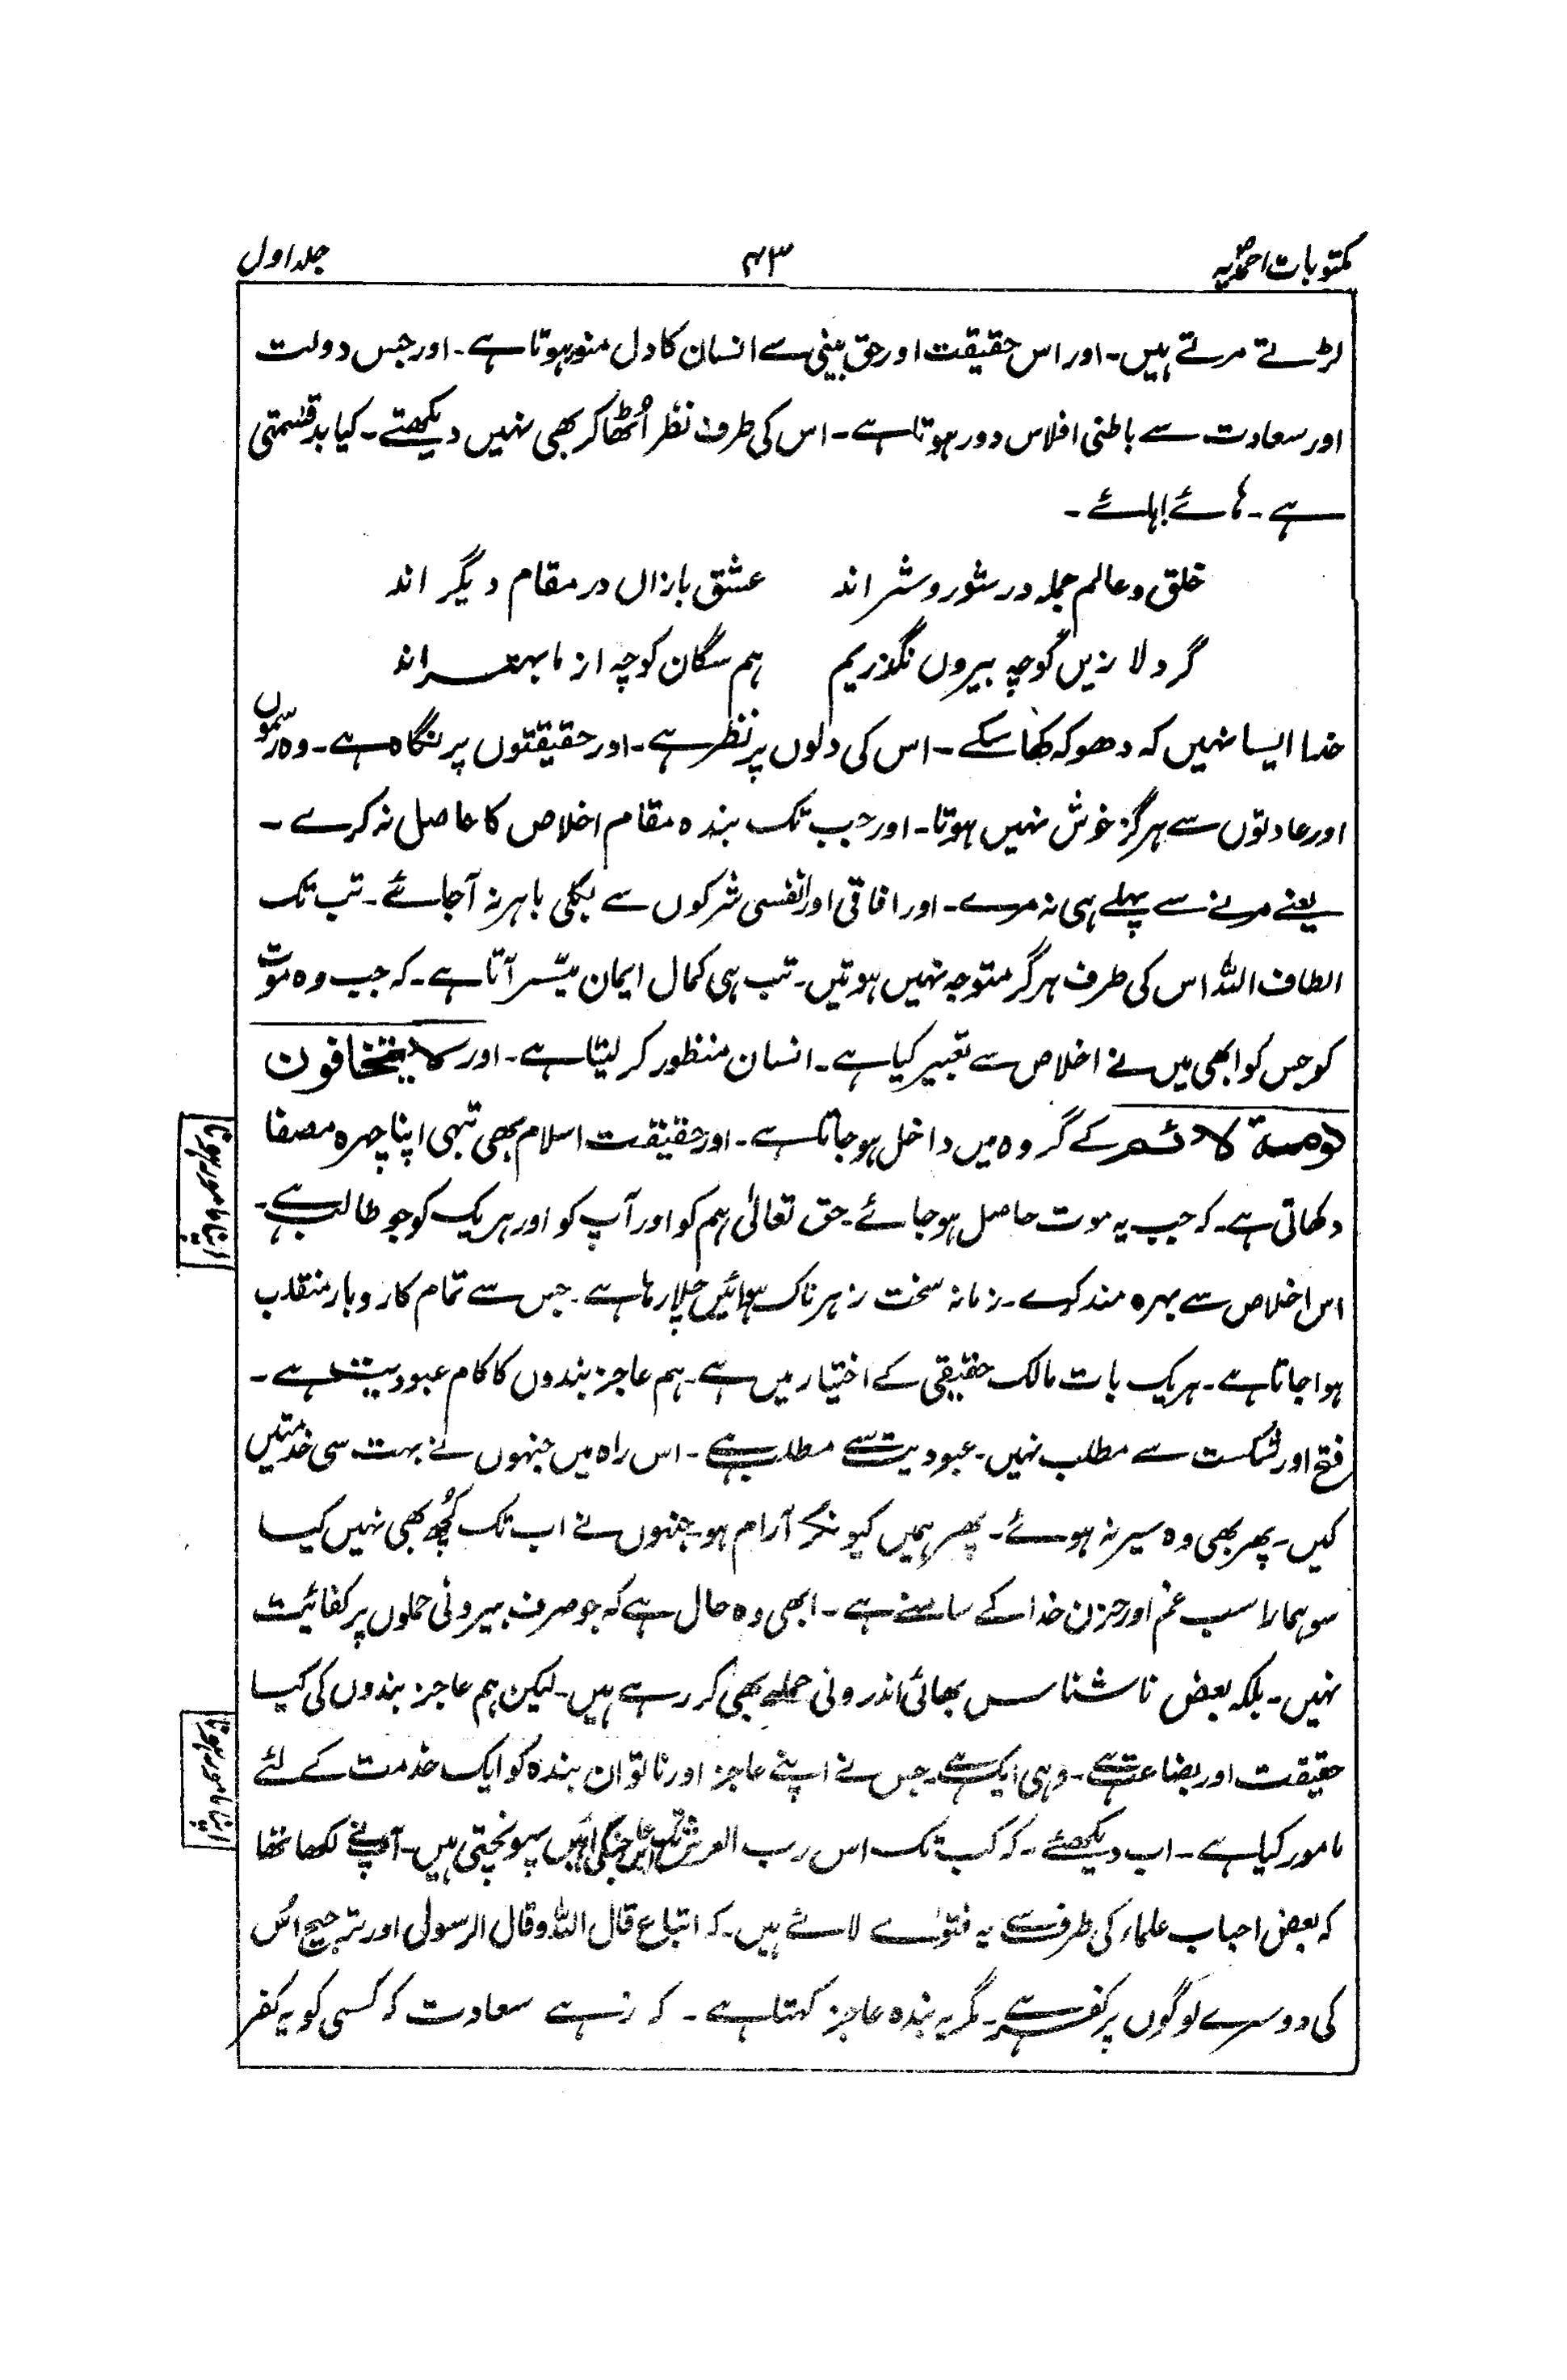 مکتوبات احمدیہ ۴۳ جلد اول
لڑتے مرتے ہیں۔ اور اس حقیقت اور حق بینی سے انسان کا دل منور ہوتا ہے۔ اور جس دولت
اور سعادت سے باطنی افلاس دور ہوتا ہے۔ اس کی طرف نظر اُٹھا کر بھی نہیں دیکھتے۔ کیا بدقسمتی
ہے۔ ہائے ہائے۔
خلق و عالم جملہ در شور و شر اند عشق بازاں در مقام دیگر اند
گر دلا زیں کوچہ بیروں نگذریم ہم سگان کوچہ از ما بہتر اند
خدا ایسا نہیں کہ دھوکہ کھا سکے۔ اس کی دلوں پر نظر ہے۔ اور حقیقتوں پر نگاہ ہے۔ وہ رسموں
اور عادتوں سے ہرگز خوش نہیں ہوتا۔ اور جب تک بندہ مقام اخلاص کا حاصل نہ کرے۔
یعنے مرنے سے پہلے ہی نہ مرے۔ اور افاقی اور انفسی شرکوں سے بکلی باہر نہ آجائے۔ تب تک
الطاف اللہ اس کی طرف ہرگز متوجہ نہیں ہوتیں۔ تب ہی کمال ایمان میسّر آتا ہے۔ کہ جب وہ موت
کو جس کو ابھی میں نے اخلاص سے تعبیر کیا ہے۔ انسان منظور کر لیتا ہے۔ اور لا یخافون
لومۃ لائم کے گروہ میں داخل ہو جاتا ہے۔ اور حقیقت اسلام بھی تبہی اپنا چہرہ مصفا
دکھاتی ہے۔ کہ جب یہ موت حاصل ہو جائے۔ حق تعالیٰ ہم کو اور آپ کو اور ہریک کو جو طالب ہے۔
اس اخلاص سے بہرہ مند کرے۔ زمانہ سخت زہرناک ہوائیں چلا رہا ہے۔ جس سے تمام کاروبار منقلب
ہوا جاتا ہے۔ ہریک بات مالک حقیقی کے اختیار میں ہے۔ ہم عاجز بندوں کا کام عبودیت ہے۔
فتح اور شکست سے مطلب نہیں۔ عبودیت سے مطلب ہے۔ اس راہ میں جنہوں نے بہت سی خدمتیں
کیں۔ پھر بھی وہ سیر نہ ہوئے۔ پھر ہمیں کیونکر آرام ہو۔ جنہوں نے اب تک کُچھ بھی نہیں کیا
سو ہمارا سب غم اور حزن خدا کے سامنے ہے۔ ابھی وہ حال ہے کہ جو صرف بیرونی حملوں پر کفائیت
نہیں۔ بلکہ بعض ناشناس بھائی اندرونی حملے بھی کر رہے ہیں۔ لیکن ہم عاجز بندوں کی کیا
حقیقت اور بضاعت ہے۔ وہی ایک ہے۔ جس نے اپنے عاجز اور ناتوان بندہ کو ایک خدمت کے لئے
مامور کیا ہے۔ اب دیکھئے۔ کہ کب تک اس رب العرش تک اس عاجز کی آہیں پہونچتی ہیں۔ آپ نے لکھا تھا
کہ بعض احباب علماء کی طرف سے یہ فتوےٰ لائے ہیں۔ کہ اتباع قال اللہ وقال الرسول اور ترجیح اُس
کی دوسرے لوگوں پر کفر ہے۔ مگر یہ بندہ عاجز کہتا ہے۔ کہ زہے سعادت کہ کسی کو یہ کفر